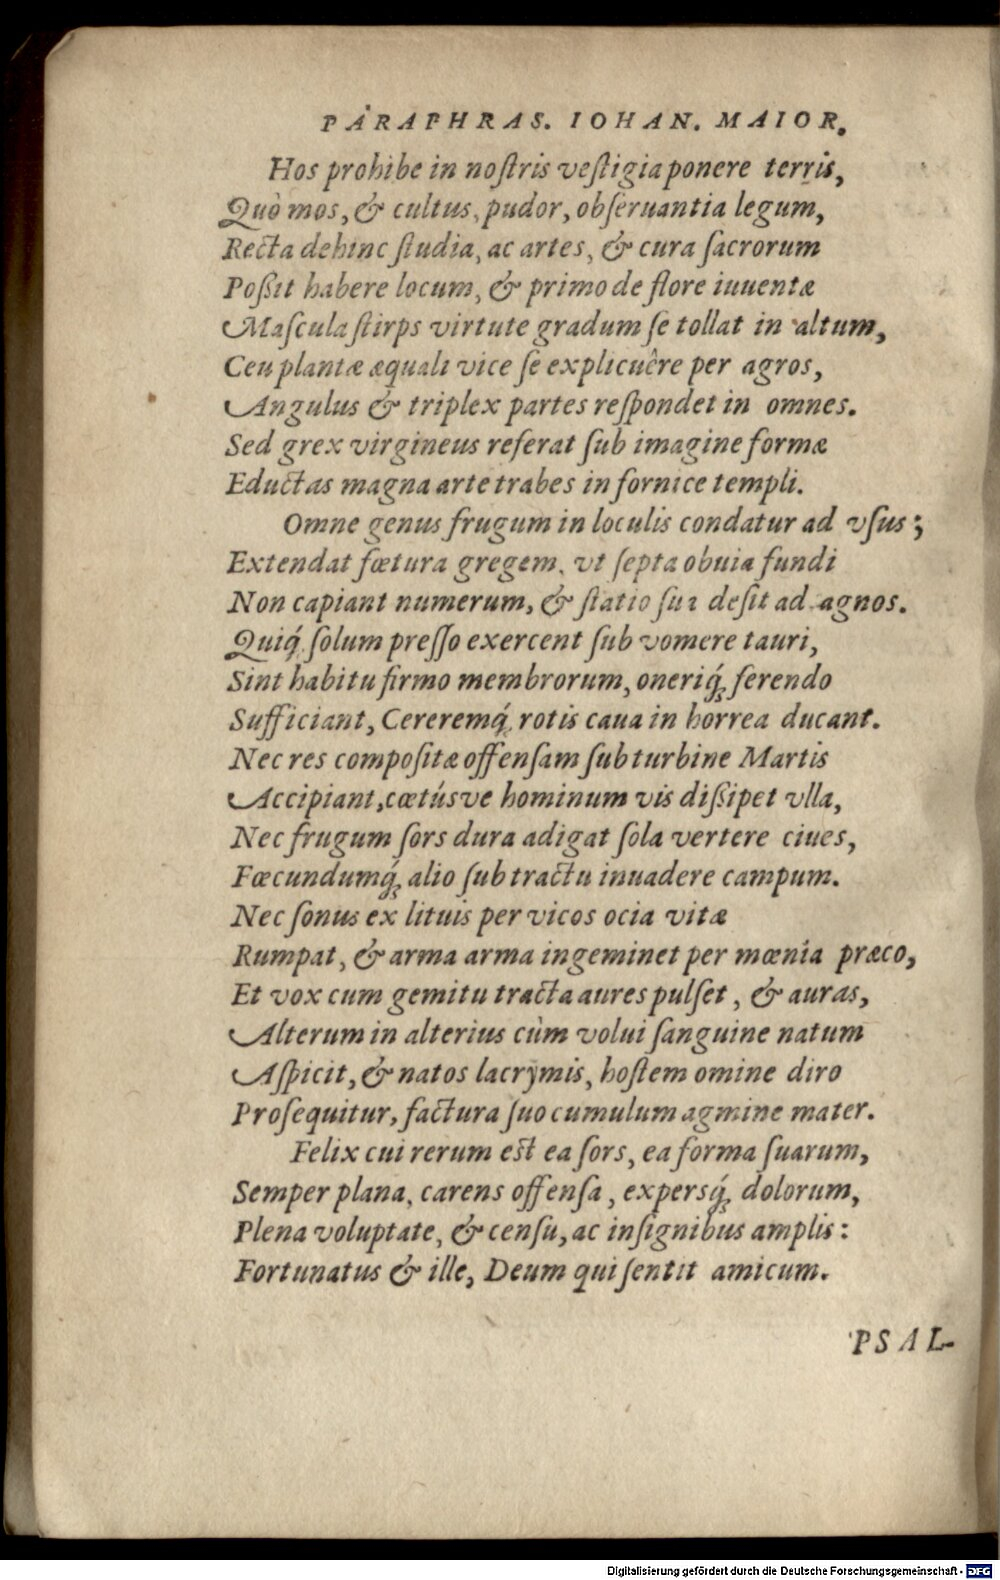 PARAPHRAS. IOHAN. MAIOR.
Hos prohibe in noſtris veſtigia ponere terris,
Quò mos, & cultus, pudor, obſeruantia legum,
Recta dehinc ſtudia, ac artes, & cura ſacrorum
Poßit habere locum, & primo de flore iuuentæ
Maſcula ſtirps virtute gradum ſe tollat in altum,
Ceu plantæ æquali vice ſe explicuêre per agros,
Angulus & triplex partes reſpondet in omnes.
Sed grex virgineus referat ſub imagine formæ
Eductas magna arte trabes in fornice templi.
Omne genus frugum in loculis condatur ad vſus;
Extendat fœtura gregem, vt ſepta obuia fundi
Non capiant numerum, & ſtatio ſua deſit ad agnos.
Quiq́; ſolum preſſo exercent ſub vomere tauri,
Sint habitu firmo membrorum, oneriq́; ferendo
Sufficiant, Cereremq́; rotis caua in horrea ducant.
Nec res compoſitæ offenſam ſub turbine Martis
Accipiant, cœtúsve hominum vis dißipet vlla,
Nec frugum ſors dura adigat ſola vertere ciues,
Fœcundumq́; alio ſub tractu inuadere campum.
Nec ſonus ex lituis per vicos ocia vitæ
Rumpat, & arma arma ingeminet per mœnia præco,
Et vox cum gemitu tracta aures pulſet, & auras,
Alterum in alterius cùm volui ſanguine natum
Aſpicit, & natos lacrymis, hoſtem omine diro
Proſequitur, factura ſuo cumulum agmine mater.
Felix cui rerum est ea ſors, ea forma ſuarum,
Semper plana, carens offenſa, expersq́; dolorum,
Plena voluptate, & cenſu, ac inſignibus amplis:
Fortunatus & ille, Deum qui ſentit amicum.
PSAL-
Digitalisierung gefördert durch die Deutsche Forschungsgemeinschaft - DFG